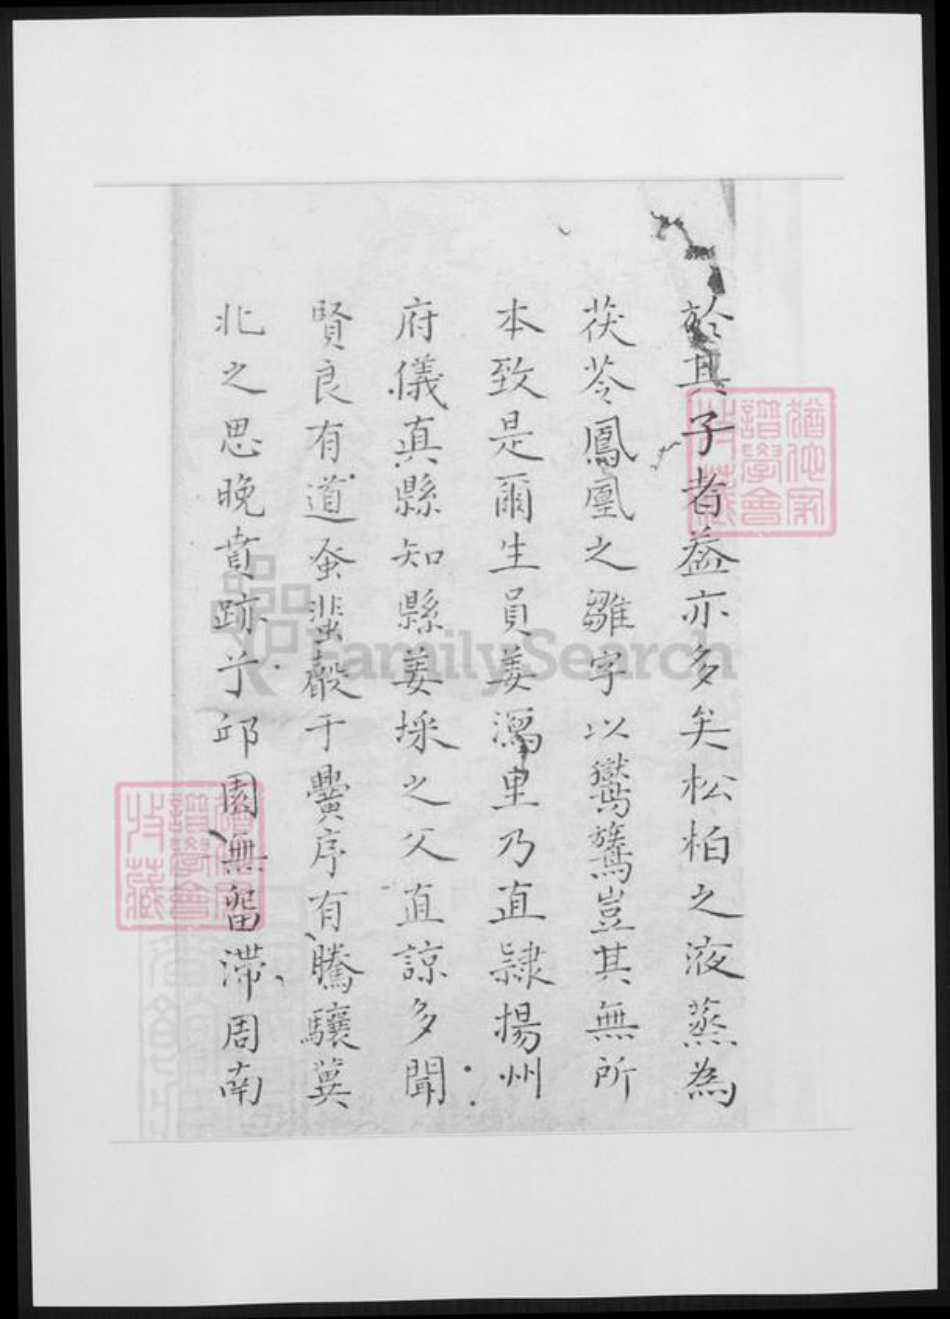 於其子者益亦多矣松柏之液蒸為
茯苓鳳凰之雛字以鸑鷟豈其無所
本致是爾生員姜里乃直隸揚州
府儀真縣知縣姜埰之父直諒多聞
賢良有道蚤蜚聲于黌序有騰驤冀
北之思晚賁跡於邱園無留滯周南
FamilySearch
譜學會
收藏
譜學會
收藏